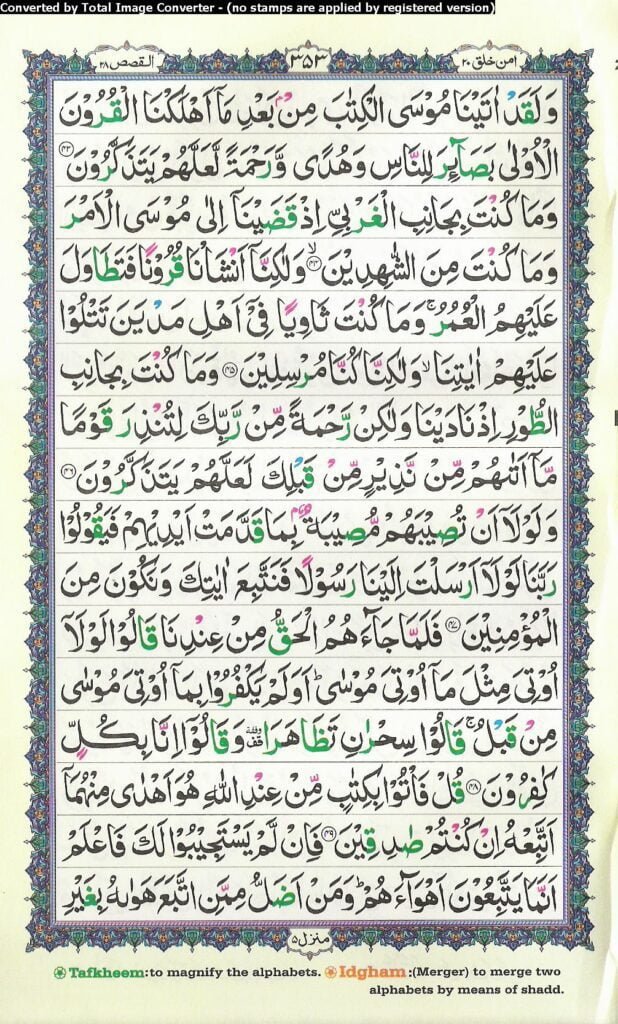 Converted by Total Image Converter - (no stamps are applied by registered version)
امن خلق ۲۰
۳۵۳
القصص ۲۸
وَلَقَدْ اٰتَيْنَا مُوْسَى الْكِتٰبَ مِنْۢ بَعْدِ مَاۤ اَهْلَكْنَا الْقُرُوْنَ
الْاُوْلٰى بَصَآئِرَ لِلنَّاسِ وَهُدًى وَّرَحْمَةً لَّعَلَّهُمْ يَتَذَكَّرُوْنَ ﴿۴۳﴾
وَمَا كُنْتَ بِجَانِبِ الْغَرْبِيِّ اِذْ قَضَيْنَاۤ اِلٰى مُوْسَى الْاَمْرَ
وَمَا كُنْتَ مِنَ الشّٰهِدِيْنَ ﴿۴۴﴾ۙ وَلٰكِنَّاۤ اَنْشَاْنَا قُرُوْنًا فَتَطَاوَلَ
عَلَيْهِمُ الْعُمُرُ ۚ وَمَا كُنْتَ ثَاوِيًا فِيْۤ اَهْلِ مَدْيَنَ تَتْلُوْا
عَلَيْهِمْ اٰيٰتِنَا ۙ وَلٰكِنَّا كُنَّا مُرْسِلِيْنَ ﴿۴۵﴾ وَمَا كُنْتَ بِجَانِبِ
الطُّوْرِ اِذْ نَادَيْنَا وَلٰكِنْ رَّحْمَةً مِّنْ رَّبِّكَ لِتُنْذِرَ قَوْمًا
مَّاۤ اَتٰىهُمْ مِّنْ نَّذِيْرٍ مِّنْ قَبْلِكَ لَعَلَّهُمْ يَتَذَكَّرُوْنَ ﴿۴۶﴾
وَلَوْلَاۤ اَنْ تُصِيْبَهُمْ مُّصِيْبَةٌۢ بِمَا قَدَّمَتْ اَيْدِيْهِمْ فَيَقُوْلُوْا
رَبَّنَا لَوْلَاۤ اَرْسَلْتَ اِلَيْنَا رَسُوْلًا فَنَتَّبِعَ اٰيٰتِكَ وَنَكُوْنَ مِنَ
الْمُؤْمِنِيْنَ ﴿۴۷﴾ فَلَمَّا جَآءَهُمُ الْحَقُّ مِنْ عِنْدِنَا قَالُوْا لَوْلَاۤ
اُوْتِيَ مِثْلَ مَاۤ اُوْتِيَ مُوْسٰى ؕ اَوَلَمْ يَكْفُرُوْا بِمَاۤ اُوْتِيَ مُوْسٰى
مِنْ قَبْلُ ۚ قَالُوْا سِحْرٰنِ تَظَاهَرَا وقفة وَقَالُوْۤا اِنَّا بِكُلٍّ
كٰفِرُوْنَ ﴿۴۸﴾ قُلْ فَاْتُوْا بِكِتٰبٍ مِّنْ عِنْدِ اللّٰهِ هُوَ اَهْدٰى مِنْهُمَاۤ
اَتَّبِعْهُ اِنْ كُنْتُمْ صٰدِقِيْنَ ﴿۴۹﴾ فَاِنْ لَّمْ يَسْتَجِيْبُوْا لَكَ فَاعْلَمْ
اَنَّمَا يَتَّبِعُوْنَ اَهْوَآءَهُمْ ؕ وَمَنْ اَضَلُّ مِمَّنِ اتَّبَعَ هَوٰىهُ بِغَيْرِ
منزل ۵
Tafkheem:to magnify the alphabets. Idgham:(Merger) to merge two
alphabets by means of shadd.